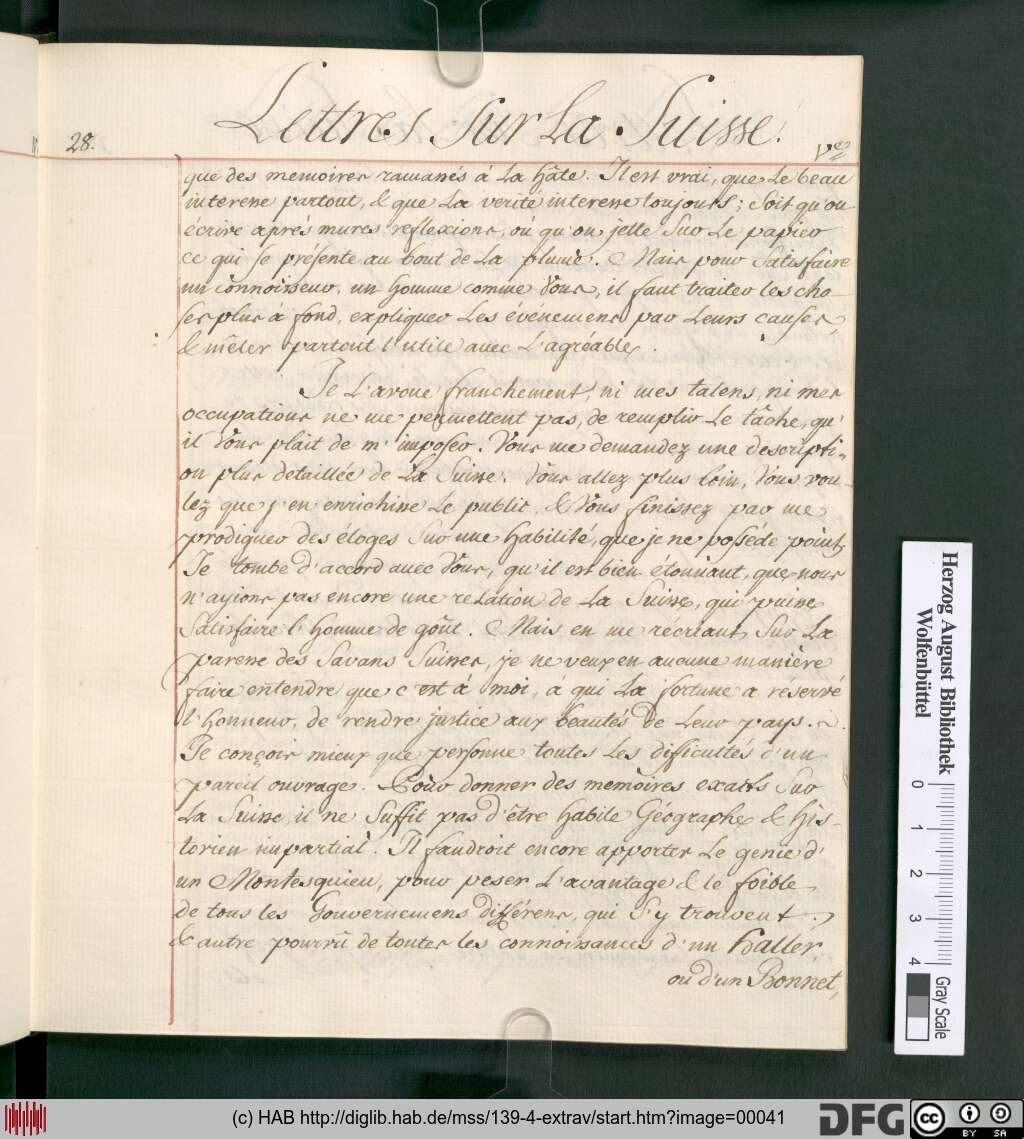 Lettres sur la Suisse.
28.
que des memoires ramassés à la hâte. Il est vrai, que le beau
interesse partout, & que la verité interesse toujours; soit qu'on
écrive aprés mures reflexions, où qu'on jette sur le papier
ce qui se présente au bout de la plume. Mais pour satisfaire
un connoisseur, un homme comme Vous, il faut traiter les cho-
ses plus à fond, expliquer les événemens par leurs causes
& mêler partout l'utile avec l'agréable.
Je l'avoue franchement, ni mes talens, ni mes
occupations ne me permettent pas, de remplir le tâche, qu'
il Vous plait de m'imposer. Vous me demandez une descripti-
on plus detaillée de la Suisse. Vous allez plus loin, Vous vou-
lez que j'en enrichisse le public, & Vous finissez par me
prodiguer des éloges sur une habilité, que je ne posséde point
Je tombe d'accord avec Vous, qu'il est bien étonnant, que nous
n'ayions pas encore une relation de la Suisse, qui puisse
satisfaire l'homme de goût. Mais en me récriant sur la
paresse des Savans Suisses, je ne veux en aucune manière
faire entendre que c'est à moi, à qui la fortune a réservé
l'honneur, de rendre justice aux beautés de leur pays.
Je conçois mieux que personne toutes les difficultés d'un
pareil ouvrage. Pour donner des memoires exacts sur
la Suisse, il ne suffit pas d'être habile Géographe & his-
torien impartial. Il faudroit encore apporter le genie d'
un Montesquieu, pour peser l'avantage & le foible
de tous les Gouvernemens différens, qui s'y trouvent;
& autre pourrû de toutes les connoissances d'un Haller,
ou d'un Bonnet,
Herzog August Bibliothek
Wolfenbüttel
0 1 2 3 4
Gray Scale
(c) HAB http://diglib.hab.de/mss/139-4-extrav/start.htm?image=00041
DFG
cc BY SA